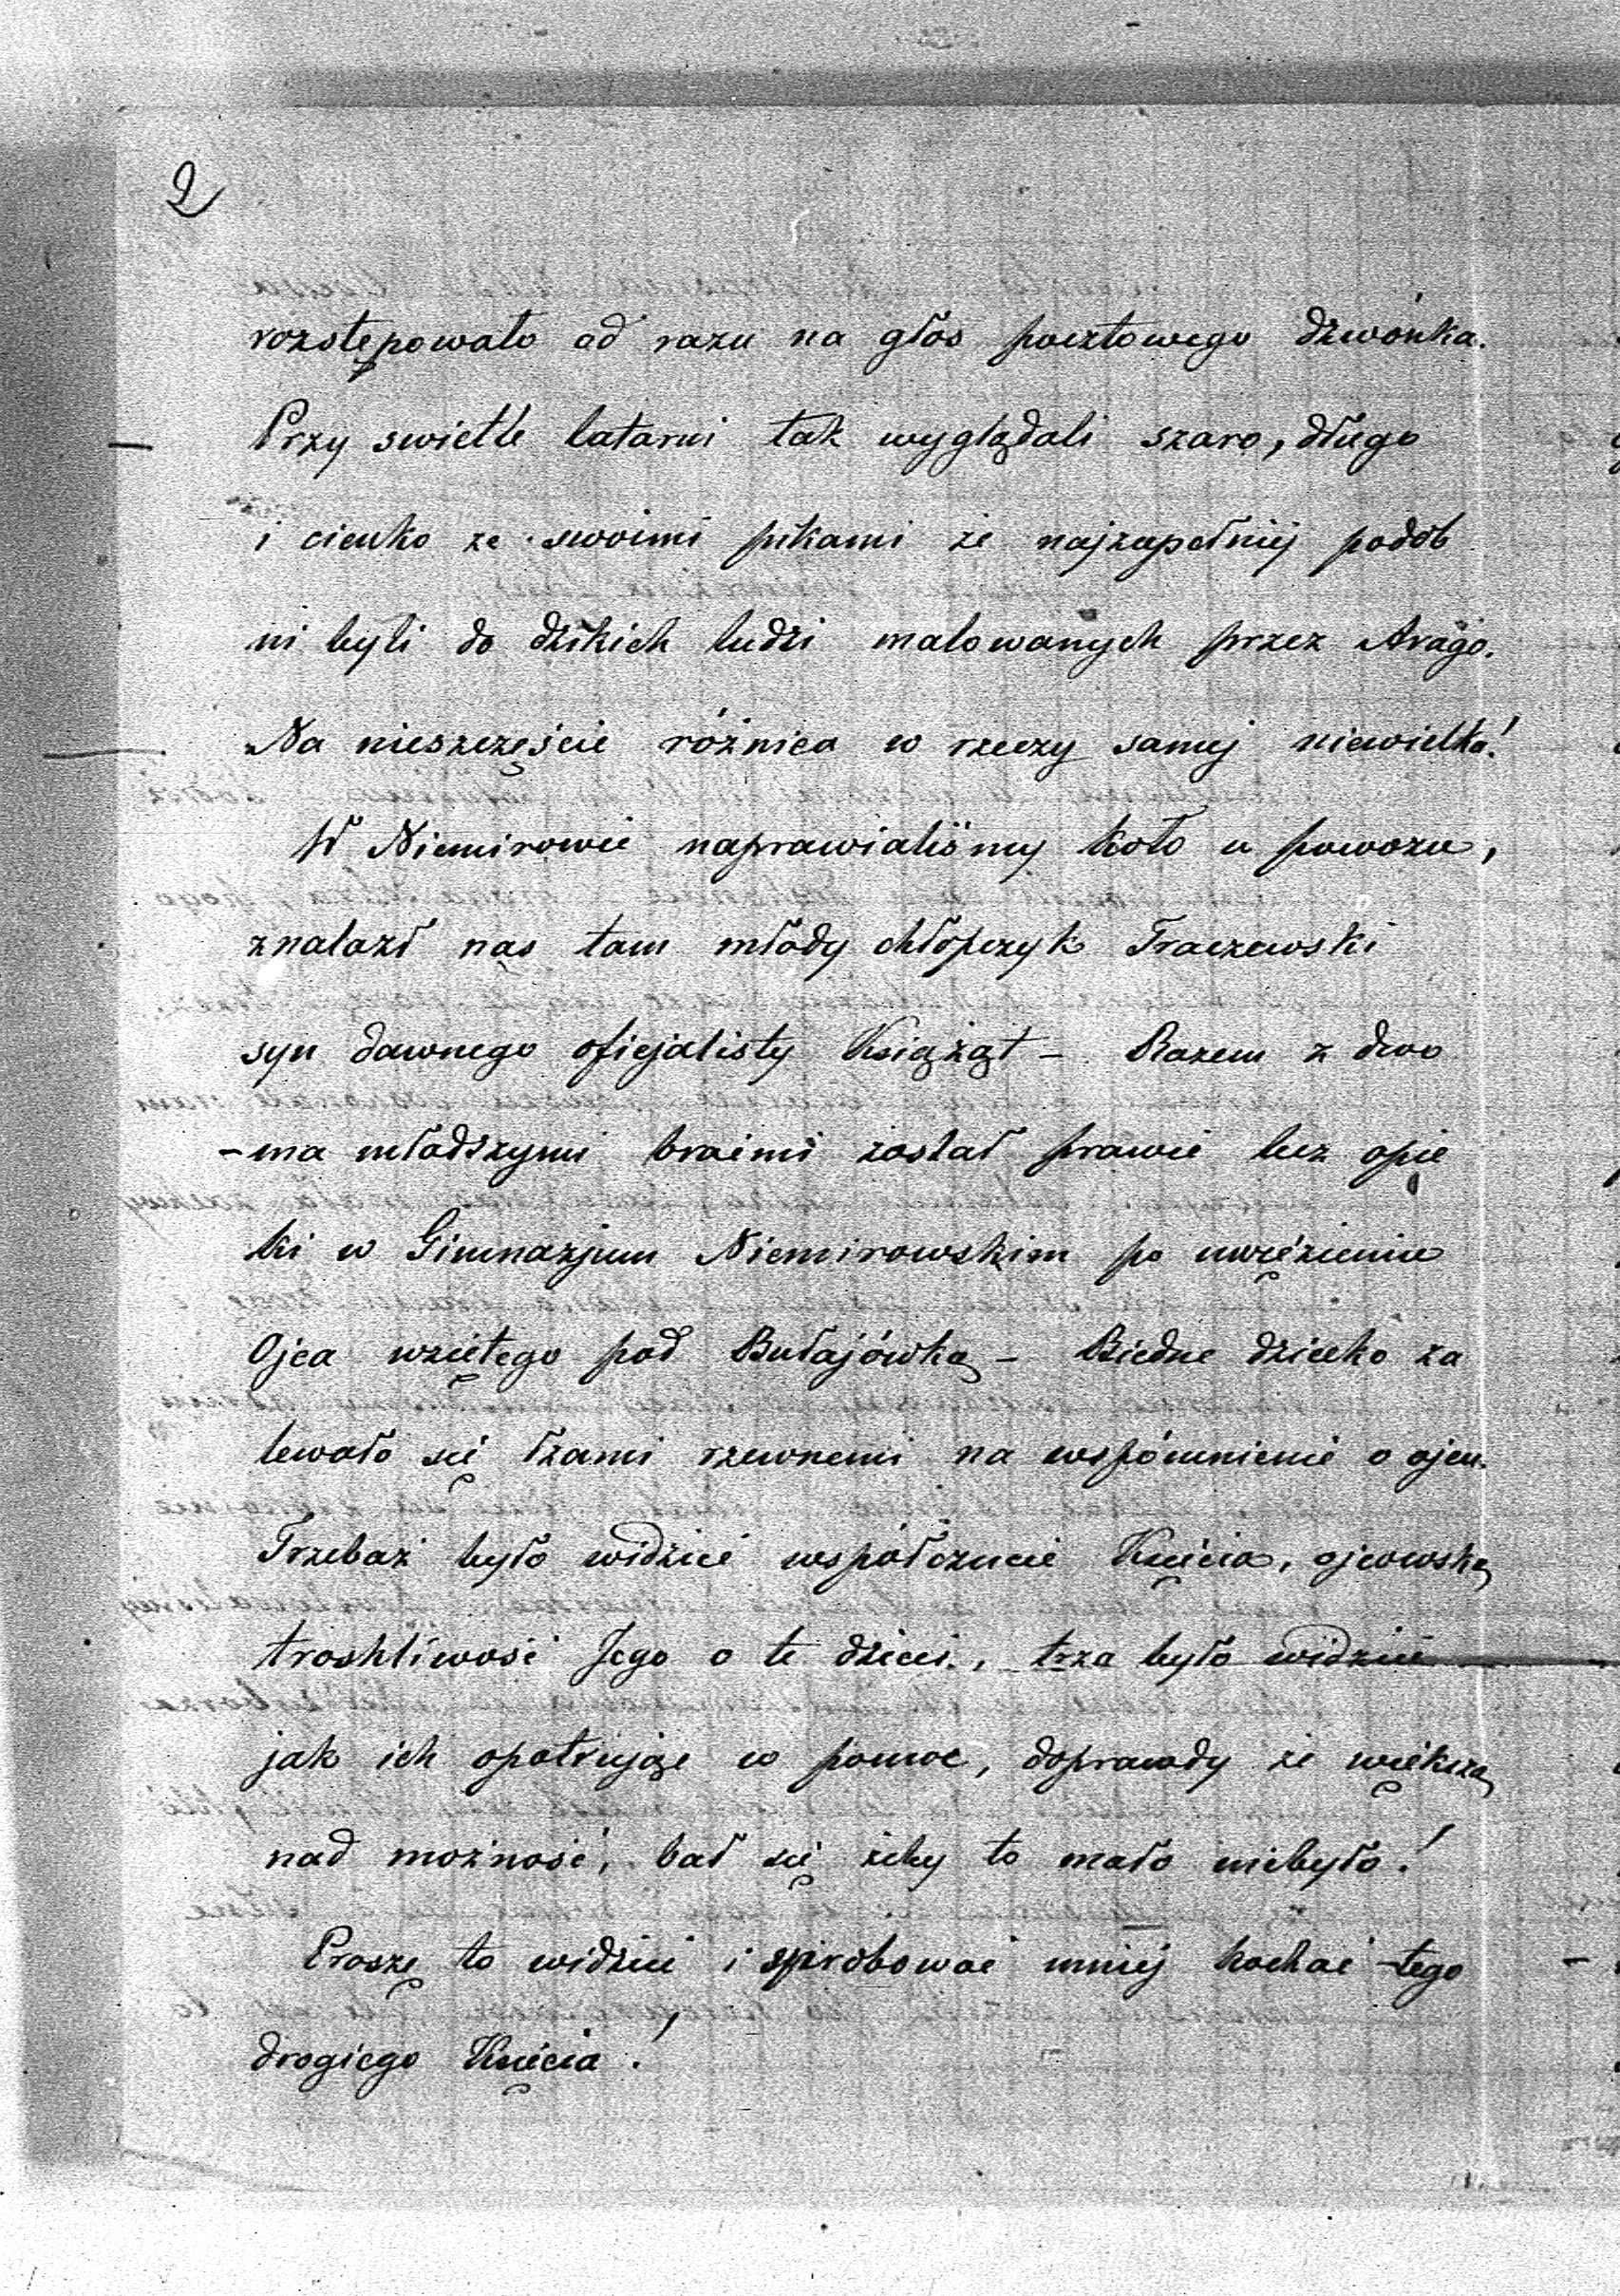 2
rozstępowało od razu na głos pocztowego dzwónka.
Przy swietle latarni tak wyglądali szaro, długo
i cienko ze swoimi pikami że najzupełniéj podób
ni byli do dzikich ludzi malowanych przez Arago.
Na nieszczęście różnica w rzeczy samej niewielka!
W Niemirowie naprawialiśmy koło u powozu,
znalazł nas tam młody chłopczyk Traczewski
syn dawnego oficjalisty Książąt – Razem z dwo
-ma młodszymi braćmi został prawie bez opie
ki w Gimnazjum Niemirowskim po uwięzieniu
Ojca wziętego pod Bułajówką – Biedne dziecko za
lewało się łzami rzewnemi na wspómnienie o ojcu.
Trzebaż było widzieć współczucie Kięcia, ojcowską
troskliwość Jego o te dzieci, trza było widzieć
jak ich opatrując w pomoc, doprawdy że większą
nad możność, bał się żeby to mało niebyło!
Proszę to widzieć i spróbować mniéj kochać tego
drogiego Kięcia!